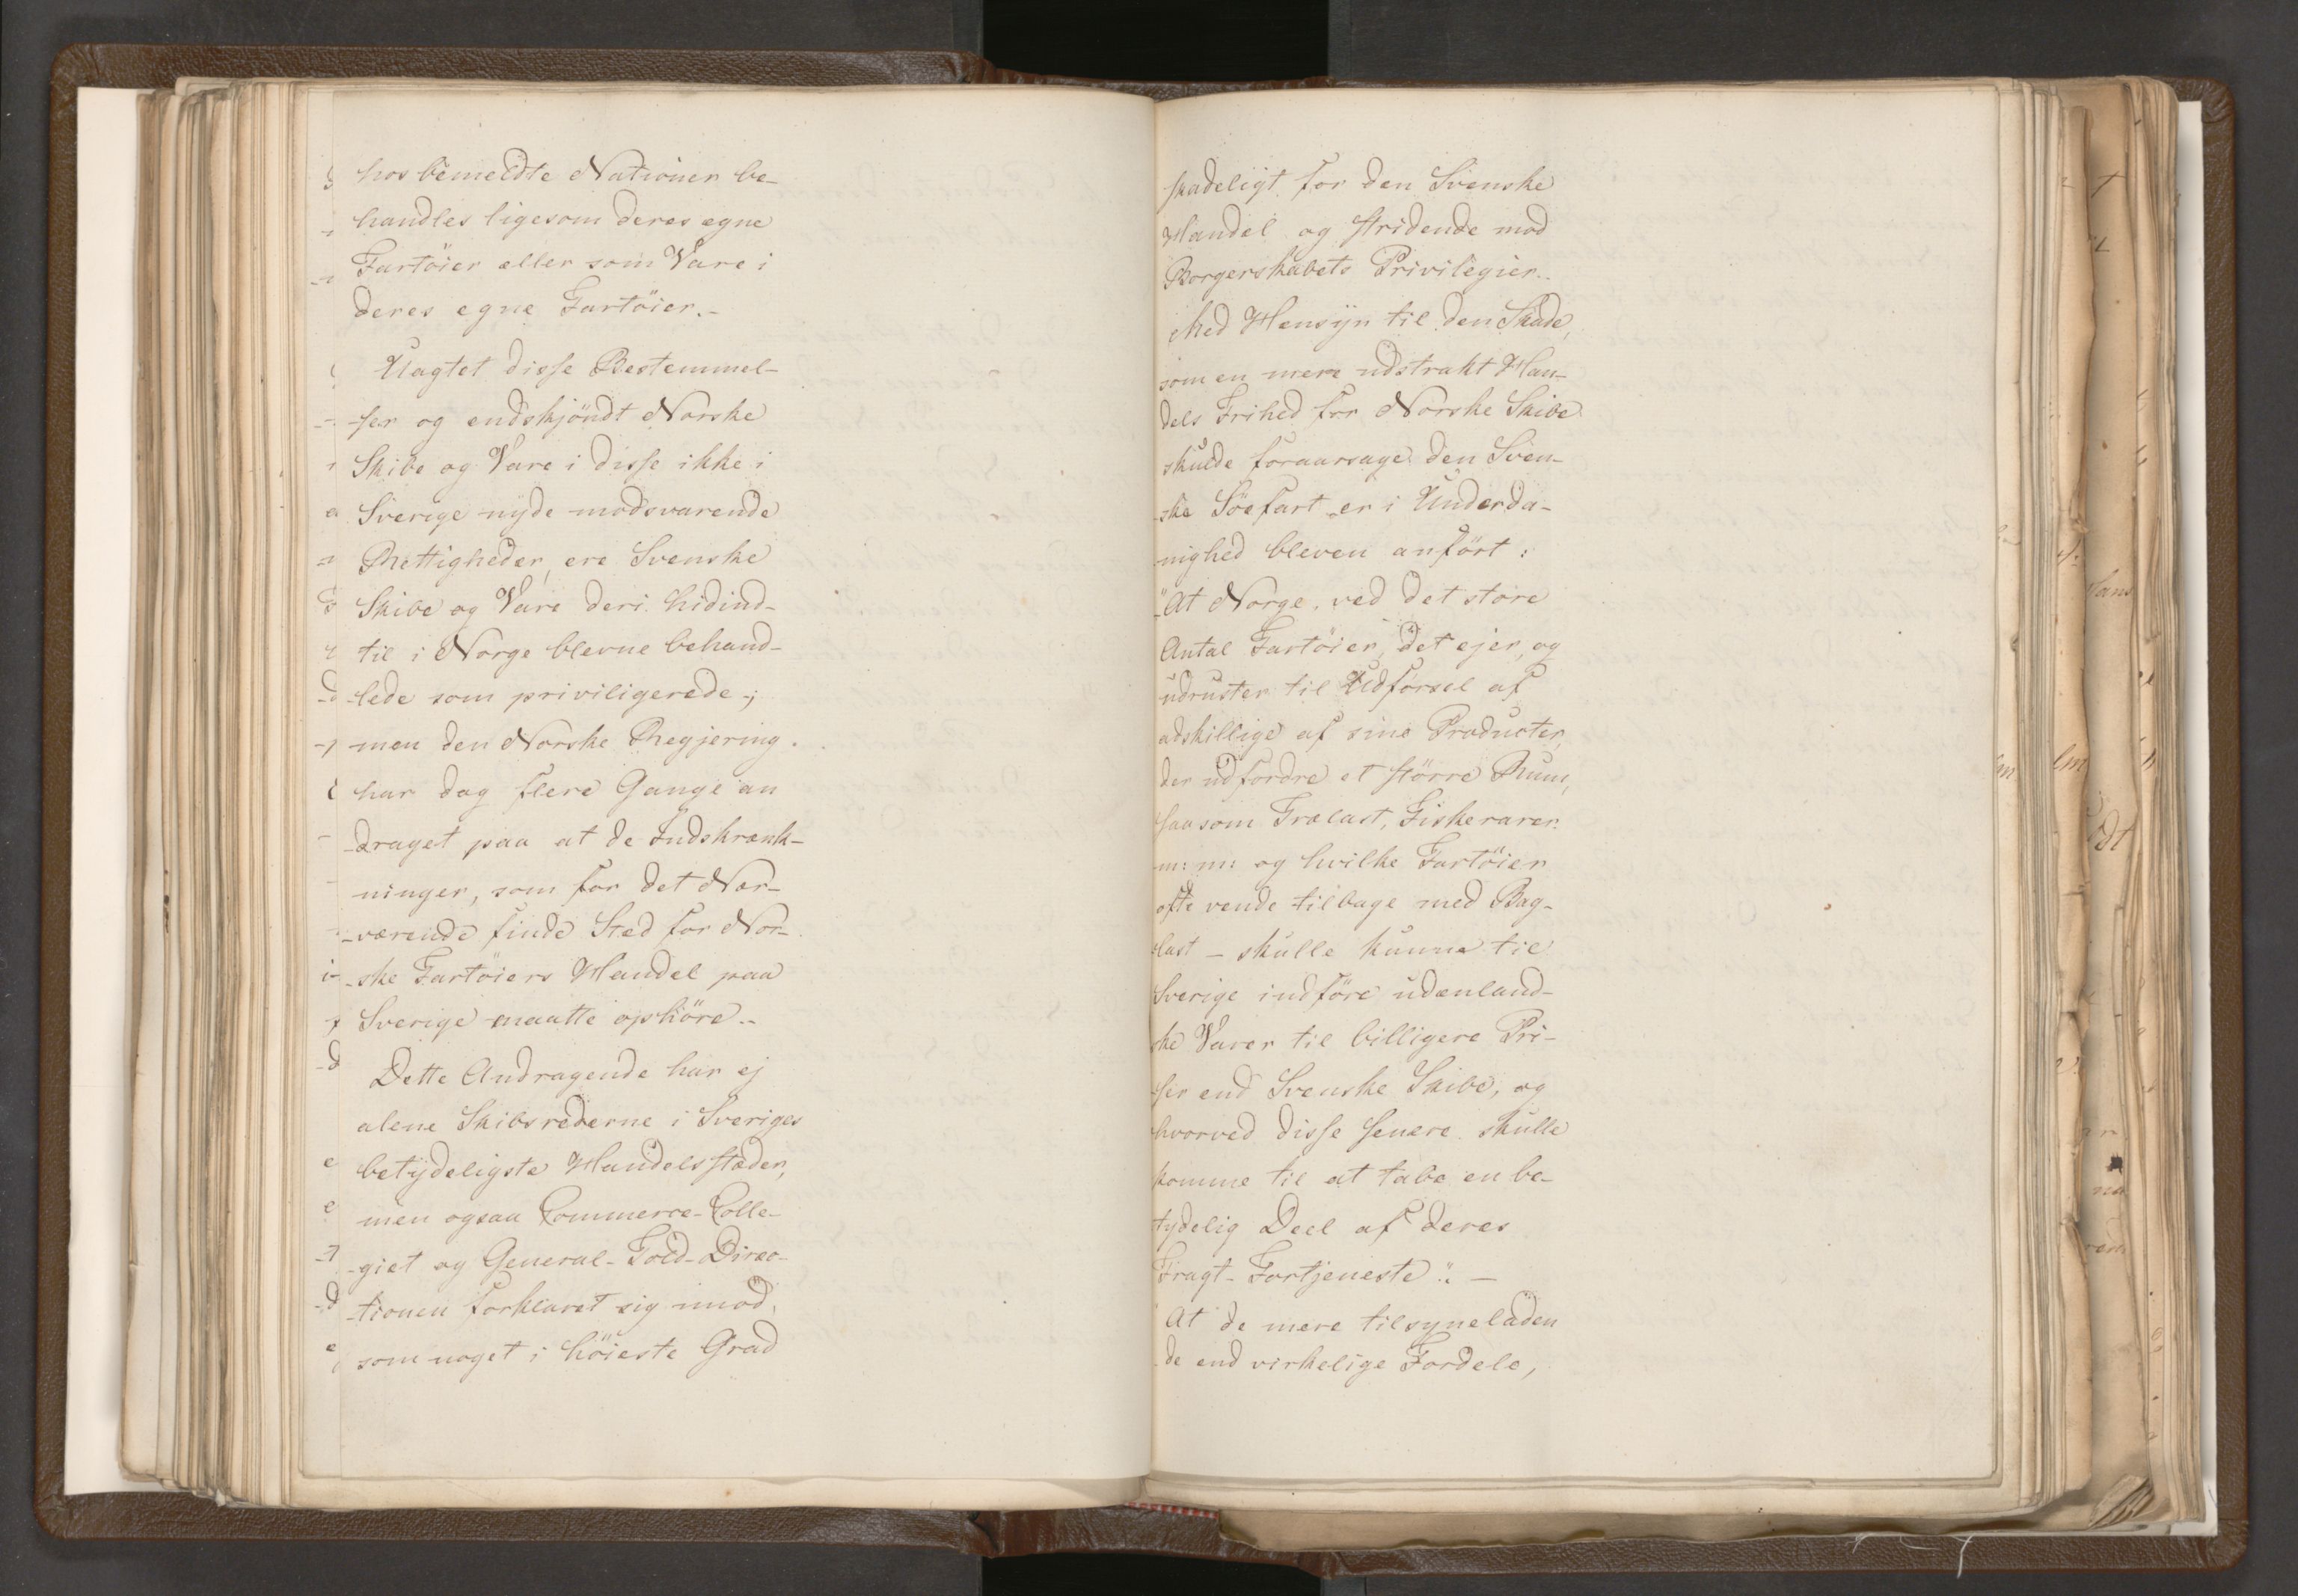 hos bemeldte Nationer be-
handles ligesom deres egne
Fartöier eller som Vare i
deres egne Fartöier.-
Uagtet disse Bestemmel-
-ser og endskjöndt Norske
Skibe og Vare i disse ikke i
Sverige nyde modsvarende
Rettigheder, ere Svenske
Skibe og Vare deri hidind-
til i Norge blevne behand-
-lede som priviligerede-;
men den Norske Regjering
har dog flere Gange an
-draget paa at de Indskrænk-
ninger, som for det Nær-
-værende finde Sted for Nor-
-ske Fartöiers Handel paa
Sverige maatte ophöre.-
Dette Andragende har ej
alene Skibsrederne i Sveriges
betydeligste Handelsstæder,
men ogsaa Commerce-Colle-
-giet og General-Told-Direc-
-tionen forklaret sig imod,
som noget i höieste Grad
skadeligt for den Svenske
Handel og stridende mod
Borgerskabets Privilegier.
Med Hensyn til den Skade,
som en mere udstrakt Han-
dels Frihed for Norske Skibe
skulde foraarsage den Sven-
-ske Söefart er i Underda-
-nighed bleven anfört:
"At Norge, ved det store
Antal Fartöier, det ejer, og
udruster til Udförsel af
adskillige af sine Producter,
der udfordre et större Rum,
saasom Trælast, Fiskevarer
m: m: og hvilke Fartöier
ofte vende tilbage med Bag-
last - skulle kunne til
Sverige indföre udenland-
ske Varer til billigere Pri-
-ser end Svenske Skibe, og
hvorved disse senere skulle
komme til at tabe en be-
tydelig Deel af deres
Fragt-Fortjeneste". -
At de mere tilsyneladen
-de end virkelige Fordele,